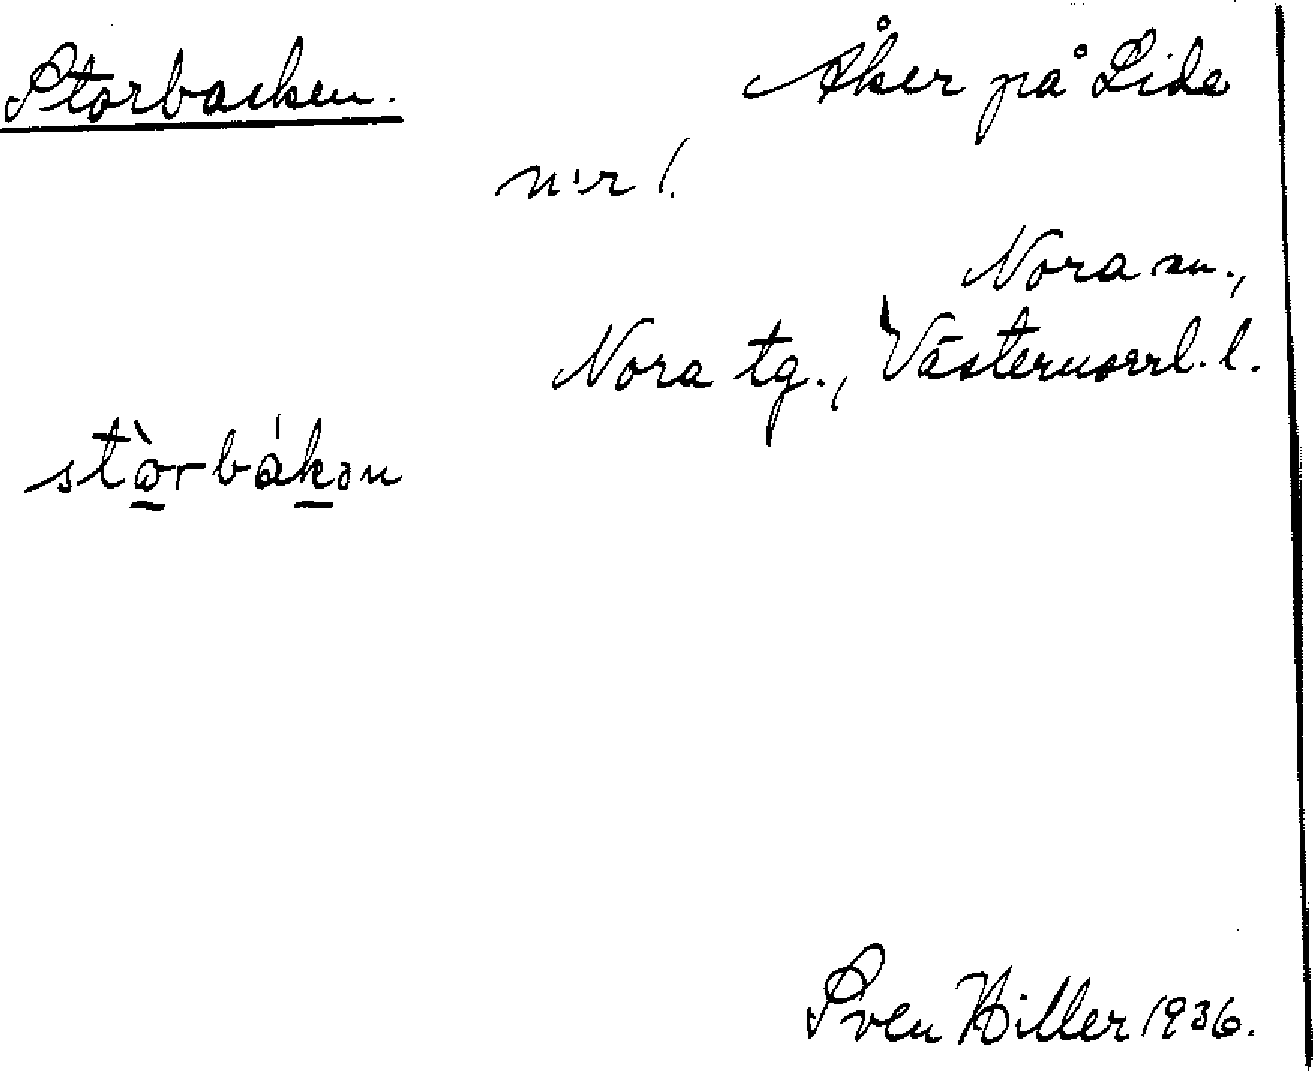 Storbacken.
Åker på Lide
n:r 1.
Nora sn.,
Nora tg., Västernorrl. l.
stòrbákən
Sven Hiller 1936.